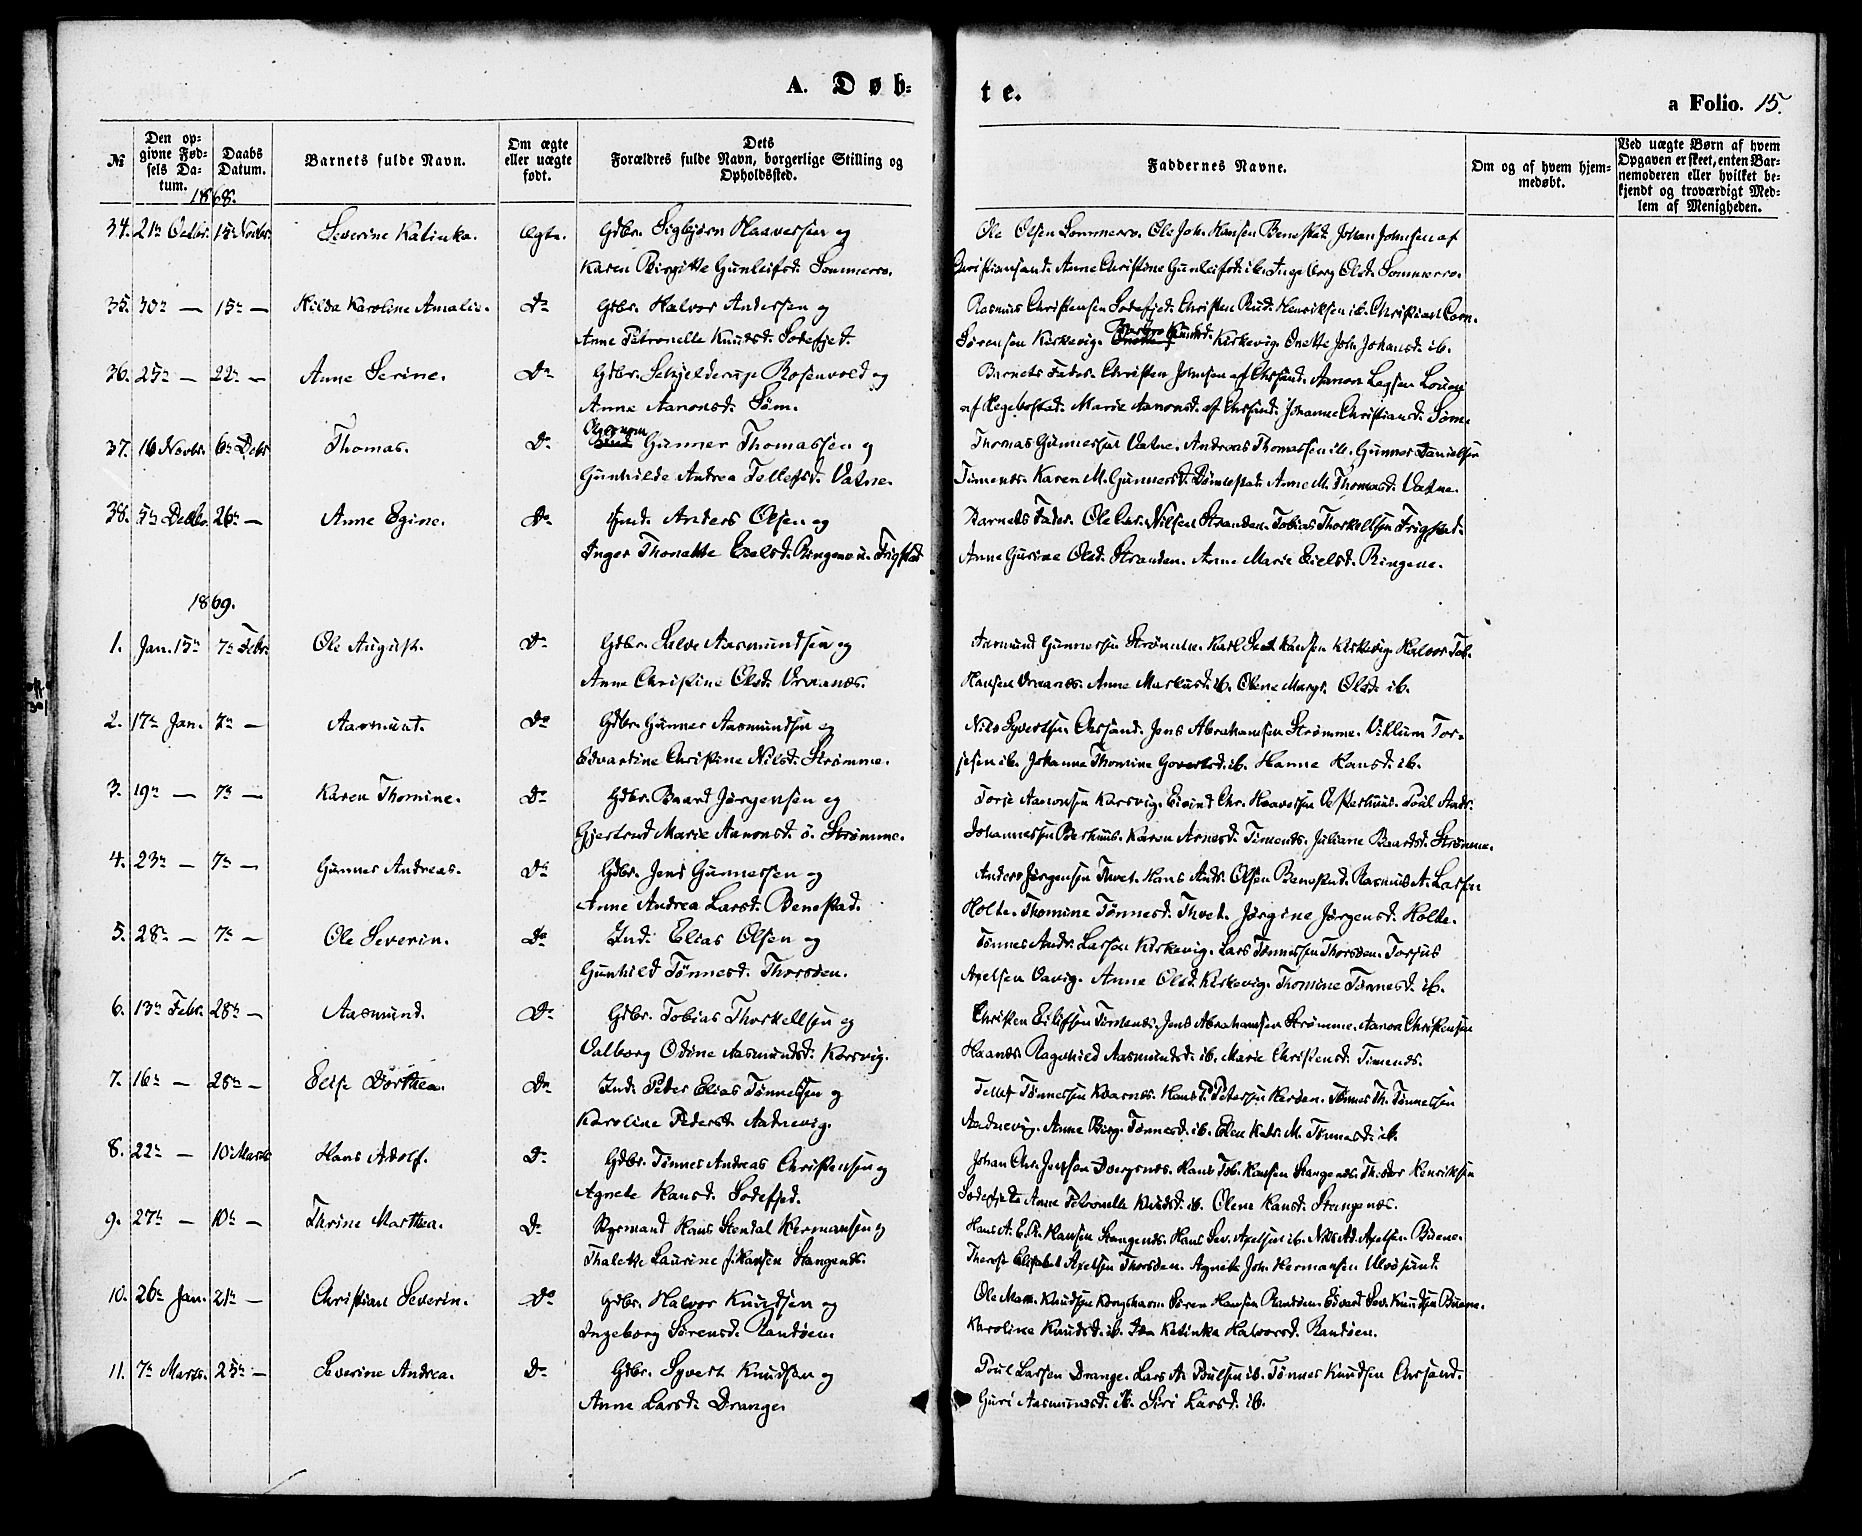 A. Døb-
te.
a Folio. 15.
№
Den op-
givne Fød-
sels Da-
tum.
Daabs
Datum.
Barnets fulde Navn.
Om ægte
eller uægte
født.
Dets
Forældres fulde Navn, borgerlige Stilling og
Opholdssted.
Faddernes Navne.
Om og af hvem hjem-
medøbt.
Ved uægte Børn af hvem
Opgaven er skeet, enten Bar-
nemoderen eller hvilket be-
kjendt og troværdigt Med-
lem af Menigheden.
1868.
34. 21de Octbr. 15 Novbr. Severine Katinka. Ægte. Gdbr. Sigbjørn Haaversen og
Karen Birgitte Gunleifsd. Sommerro.
Ole Olsen Sommerro. Ole Joh. Hansen Benestad. Johan Johnsen af
Christiansand. Anne Christine Gunleifsd. ib. Ingeborg Olsd. Sommerro.
35. 30te — 15de — Hilda Karoline Amalie. Do Gdbr. Halvor Andersen og
Anne Petronelle Knudsd. Sodefjed.
Rasmus Christensen Sodefjed. Christen Rud. Henriksen ib. Christian Corn.
Sørensen Kirkevig. Barbro Knudsd. Kirkevig. Onette Joh. Johansd. ib.
36. 25de — 22de — Anne Serine. Do Gdbr. Schjelderup Rosenvold og
Anne Aanonsd. Søm.
Barnets Fader. Christen Johnsen af Chrsand. Aanon
af Hegebostad. Marie Aanonsd. af Chrsand. Johanne Christiansd. Søm.
37. 16 Novbr. 6te Debr Thomas. Do Gunner Thomassen og
Gunhilde Andrea Tellefsd. Vatne.
Thomas Gunnersen Vatne. Andreas Thomassen ib. Gunner Danielsen
Timenes. Karen M. Gunnersd. Dømmestad. Anne M. Thomasd. Vatne.
38. 5te Decbr. 26de — Anne Egine. Do Ind. Anders Olsen og
Inger Thonette Eielsd. Ringene u. Frigstad
Barnets Fader. Ole Chr. Nilsen Stranden. Tobias Thorkellsen Frigstad.
Anne Gurine Olsd. Stranden. Anne Marie Eielsd. Ringene.
1869.
1. Jan. 15de 7de Febr. Ole August. Do Gdbr. Salve Aasmundsen og
Anne Christine Olsd. Vraanes.
Aasmund Gunnersen Strømme. Karl Hansen Kirkevig. Halvor Tob.
Hansen Vraanes. Anne Markusd. ib. Olene Margr. Olsd. ib.
2. 17de Jan. 7de — Aasmund. Do Gdbr. Gunner Aasmundsen og
Edvartine Christine Nilsd. Strømme.
Nils Syvertsen Chrsand. Jens Abrahamsen Strømme. Villum Tor-
jesen ib. Johanne Thomine Govertsd. ib. Hanne Hansd. ib.
3. 19de — 7de — Karen Thomine. Do Gdbr. Baard Jørgensen og
Gjertrud Marie Aanonsd. ö. Strømme.
Torje Aanonsen Korsvig. Eivind Chr. Haaversen Vesterhuus. Poul Andr.
Johannessen Berhuus. Karen Arnesd. Timenes. Juliane Baardsd. Strømme.
4. 23de — 7de — Gunner Andreas. Do Gdbr. Jens Gunnersen og
Anne Andrea Larsd. Benestad.
Anders Jørgensen Tvet. Hans Andr. Olsen Benestad. Rasmus A. Larsen
Holte. Thomine Tønnesd. Thvet. Jørgine Jørgensd. Holte.
5. 28de — 7de — Ole Severin. Do Ind. Elias Olsen og
Gunhild Tønnesd. Thorsøen.
Tønnes Andr. Larsen Kirkevig. Lars Tønnessen Thorsøen. Torjus
Axelsen Vavig. Anne Olsd. Kirkevig. Thomine Tønnesd. ib.
6. 13de Febr. 28de — Aasmund. Do Gdbr. Tobias Thorkellsen og
Valborg Odine Aasmundsd. Korsvig.
Christen Eilifsen Timenes. Jens Abrahamsen Strømme. Aanon Christensen
Haanes. Ragnhild Aasmundsd. ib. Marie Christensd. Timenes.
7. 16de — 28de — Else Dorthea. Do Ind. Peder Elias Tønnessen og
Karoline Pedersd. Aadnevig.
Tellef Tønnessen Kaarnes. Hans P. Petersen Herøen. Tønnes Th. Tønnessen
Aadnevig. Anne Birg. Tønnesd. ib. Elen Katr. M. Tønnesd. ib.
8. 22de — 10 Marts Hans Adolf. Do Gdbr. Tønnes Andreas Christensen og
Agnete Hansd. Sodefjed.
Johan Chr. Jensen Dvergsnes. Hans Tob. Hansen Stangenes. Theodor Henriksen
Sodefjed. Anne Petronelle Knudsd. ib. Olene Hansd. Stangenæs.
9. 27de — 10de — Thrine Marthea. Do Styrmand Hans Stendal Hermansen og
Thalette Laurine J. Hansen Stangenes.
Hans A. E. R. Hansen Stangenes. Hans Sev. Axelsen ib. Nils Ad. Axelsen Buene.
Therese Elisabet Axelsen Thorsøen. Agnete Joh. Hermansen Ulvøsund.
10. 26de Jan. 21de — Christian Severin. Do Gdbr. Halvor Knudsen og
Ingeborg Sørensd. Randøen.
Ole Mart. Knudsen Kongshavn. Søren Hansen Randøen. Edvard Sev. Knudsen Buene.
Karoline Knudsd. ib. Ida Katinka Halvorsd. Randøen.
11. 7de Marts. 25de — Severine Andrea. Do Gdbr. Syvert Knudsen og
Anne Larsd. Drange.
Poul Larsen Drange. Lars A. Poulsen ib. Tønnes Knudsen Chrsand.
Guri Aasmundsd. ib. Siri Larsd. ib.